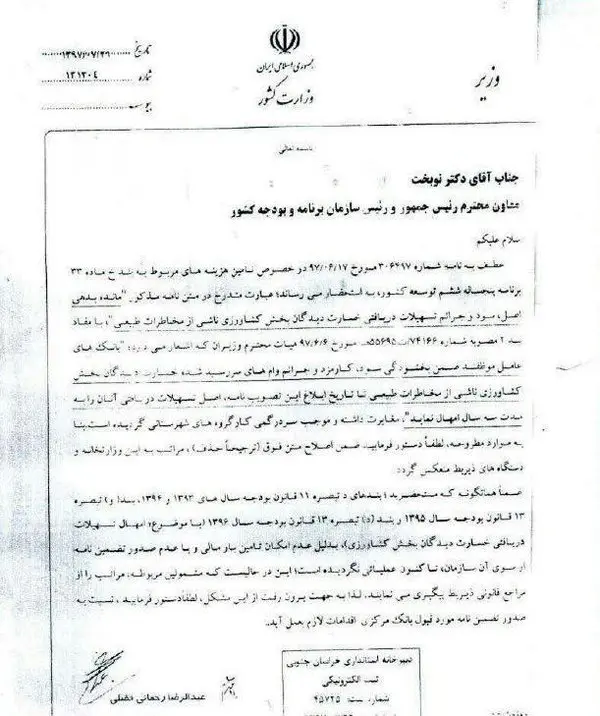 تاریخ ۱۳۹۷/۰۷/۲۹
شماره ۱۲۱۲۰۴
پیوست
جمهوری اسلامی ایران
وزارت کشور
وزیر
باسمه تعالی
جناب آقای دکتر نوبخت
معاون محترم رئیس جمهور و رئیس سازمان برنامه و بودجه کشور
سلام علیکم
عطف به نامه شماره ۳۰۶۴۹۷ مورخ ۹۷/۰۶/۱۷ در خصوص تامین هزینه های مربوط به بند خ ماده ۳۳
برنامه پنجساله ششم توسعه کشور، به استحضار می رساند؛ عبارت مندرج در متن نامه مذکور "مانده بدهی
اصل، سود و جرائم تسهیلات دریافتی خسارت دیدگان بخش کشاورزی ناشی از مخاطرات طبیعی"، با مفاد
بند ۲ مصوبه شماره ۷۴۱۶۶/ت۵۵۶۹۵ه مورخ ۹۷/۶/۶ هیات محترم وزیران که اشعار می دارد؛ "بانک های
عامل موظفند ضمن بخشودگی سود، کارمزد و جرائم وام های سررسید شده خسارت دیدگان بخش
کشاورزی ناشی از مخاطرات طبیعی تا تاریخ ابلاغ این تصویب نامه، اصل تسهیلات دریافتی آنان را به
مدت سه سال امهال نماید"، مغایرت داشته و موجب سردرگمی کارگروه های شهرستانی گردیده است. بنا
به موارد مطروحه، لطفاً دستور فرمایید ضمن اصلاح متن فوق (ترجیحاً حذف)، مراتب به این وزارتخانه و
دستگاه های ذیربط منعکس گردد.
ضمناً همانگونه که مستحضرید؛ بندهای د تبصره ۱۱ قانون بودجه سال های ۱۳۹۳ و ۱۳۹۴، بند( و) تبصره
۱۳ قانون بودجه سال ۱۳۹۵ و بند (د) تبصره ۱۳ قانون بودجه سال ۱۳۹۶ (با موضوع؛ امهال تسهیلات
دریافتی خسارت دیدگان بخش کشاورزی)، بدلیل عدم امکان تامین بار مالی و یا عدم صدور تضمین نامه
از سوی آن سازمان، تا کنون عملیاتی نگردیده است؛ این در حالیست که مشمولین مربوطه، مراتب را از
مراجع قانونی ذیربط پیگیری می نمایند. لذا به جهت برون رفت از این مشکل، لطفاً دستور فرمایید، نسبت به
صدور تضمین نامه مورد قبول بانک مرکزی اقدامات لازم بعمل آید.
عبدالرضا رحمانی فضلی
دبیرخانه استانداری خراسان جنوبی
ثبت الکترونیکی
شماره ثبت: ۴۵۷۲۵